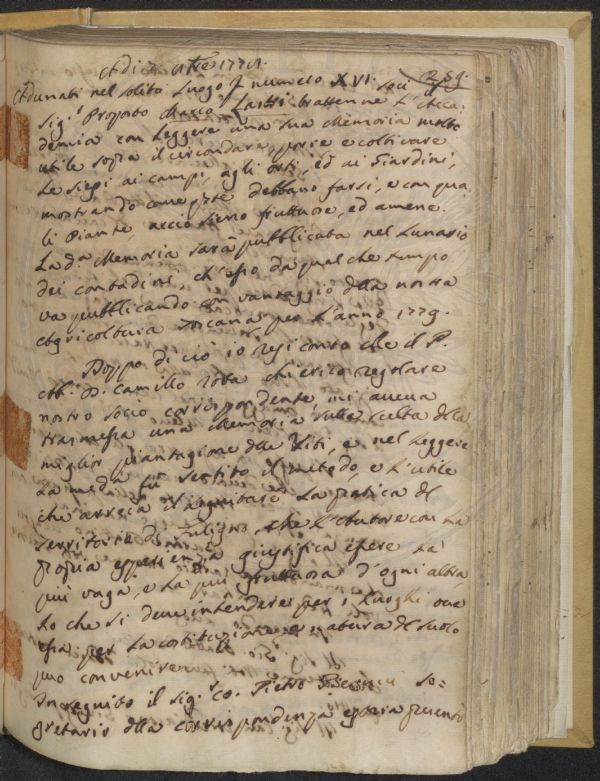 Adi 2 1778.
259.
Adunati nel solito Luogo in numero XVI. soci il
Sig.r Proposto Marco Lastri trattenne L'Acca:
demia con Leggere una sua Memoria molto
utile sopra il circondare, porre e coltivare
Le siepi ai campi, agli orti, ed ai Giardini,
mostrando come queste debbano farsi, e con qua
li piante acciò sieno fruttuose, ed amene.
La d.a Memoria sarà pubblicata nel Lunario
dei contadini, ch'esso da qualche tempo
va pubblicando con vantaggio della nostra
Agricoltura Toscana per L'anno 1779.
Doppo di ciò io resi conto che il P.
Ab. D. Camillo chierico regolare
nostro socio corrispondente mi aveva
trasmessa una Memoria sulla scelta della
miglior piantagione delle Viti, e nel Leggere
La med.a fù sentito il metodo, e L'utile
che arreca il La pratica del
territorio di Fuligno, che L'Autore con La
propria esperienza giustifica essere La
più vaga, e La più fruttuosa d'ogni altra
Lo che si deve intendere per i Luoghi ove
essa per La costituzione e natura del suolo
può convenire.
In seguito il Sig.r Co. Pietro se:
gretario della corrispondenza presentò